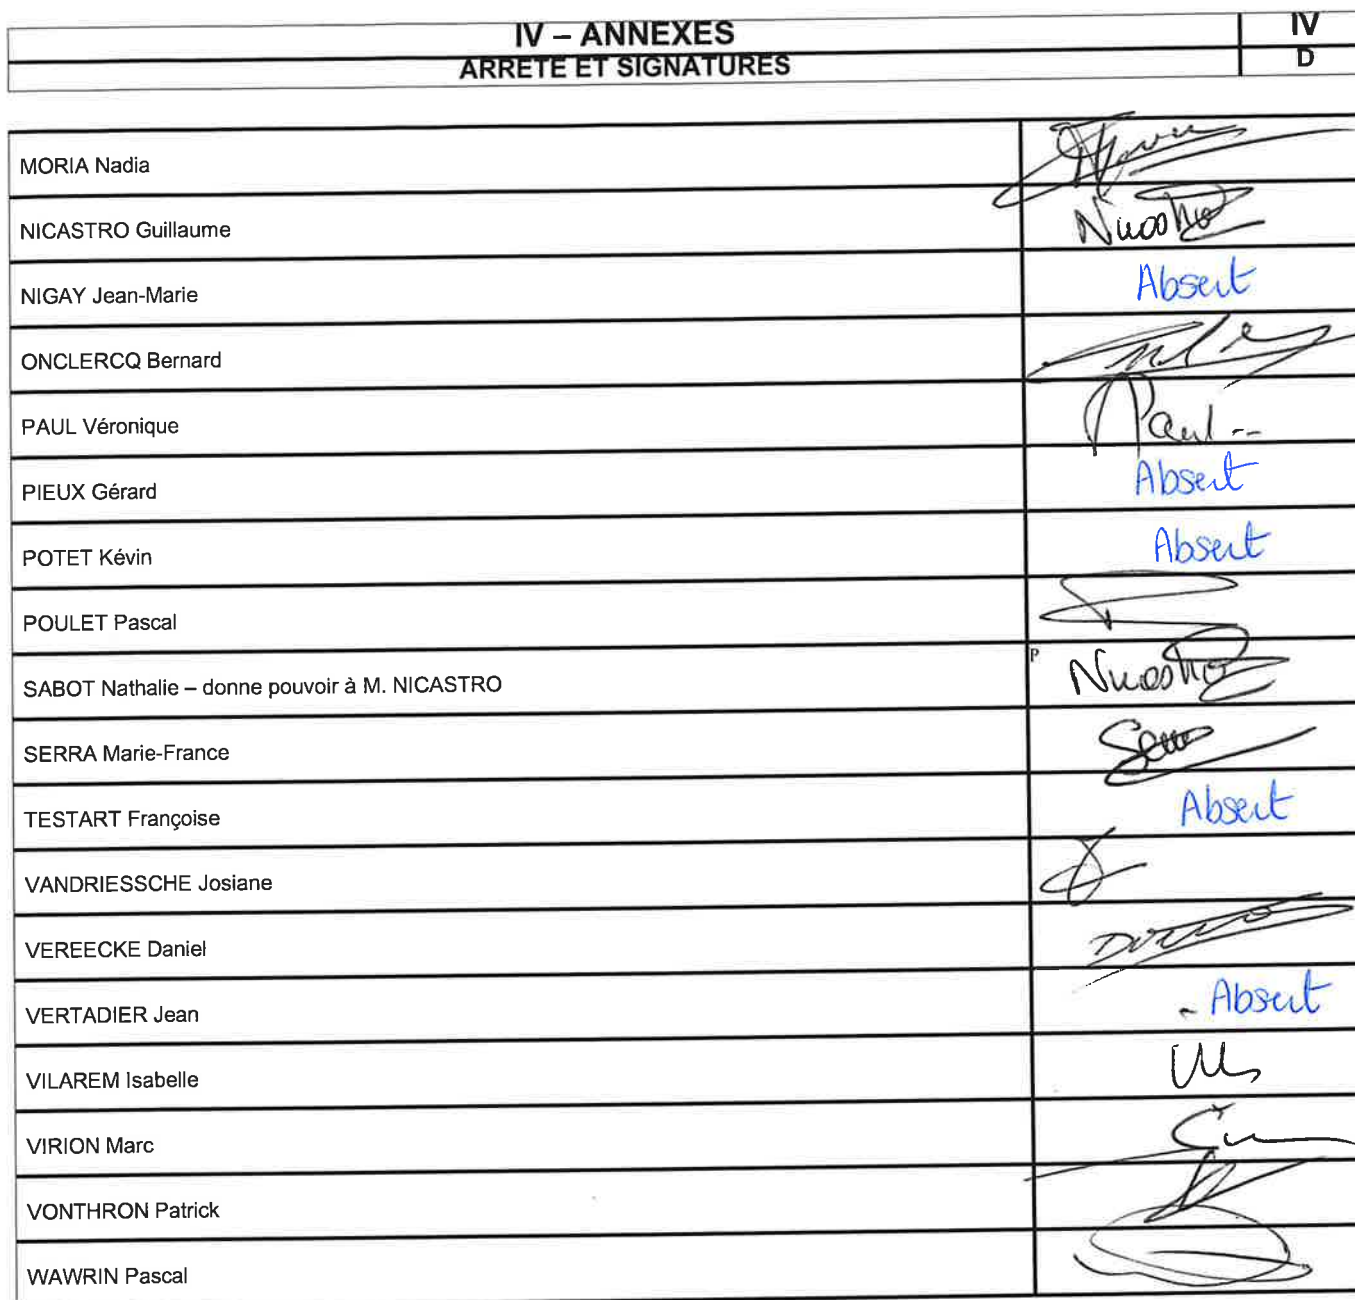 IV – ANNEXES
IV
ARRETE ET SIGNATURES
D
MORIA Nadia
NICASTRO Guillaume
Nicastro
NIGAY Jean-Marie
Absent
ONCLERCQ Bernard
PAUL Véronique
Paul
PIEUX Gérard
Absent
POTET Kévin
Absent
POULET Pascal
SABOT Nathalie – donne pouvoir à M. NICASTRO
P
Nicastro
SERRA Marie-France
TESTART Françoise
Absent
VANDRIESSCHE Josiane
VEREECKE Daniel
VERTADIER Jean
- Absent
VILAREM Isabelle
VIRION Marc
VONTHRON Patrick
WAWRIN Pascal